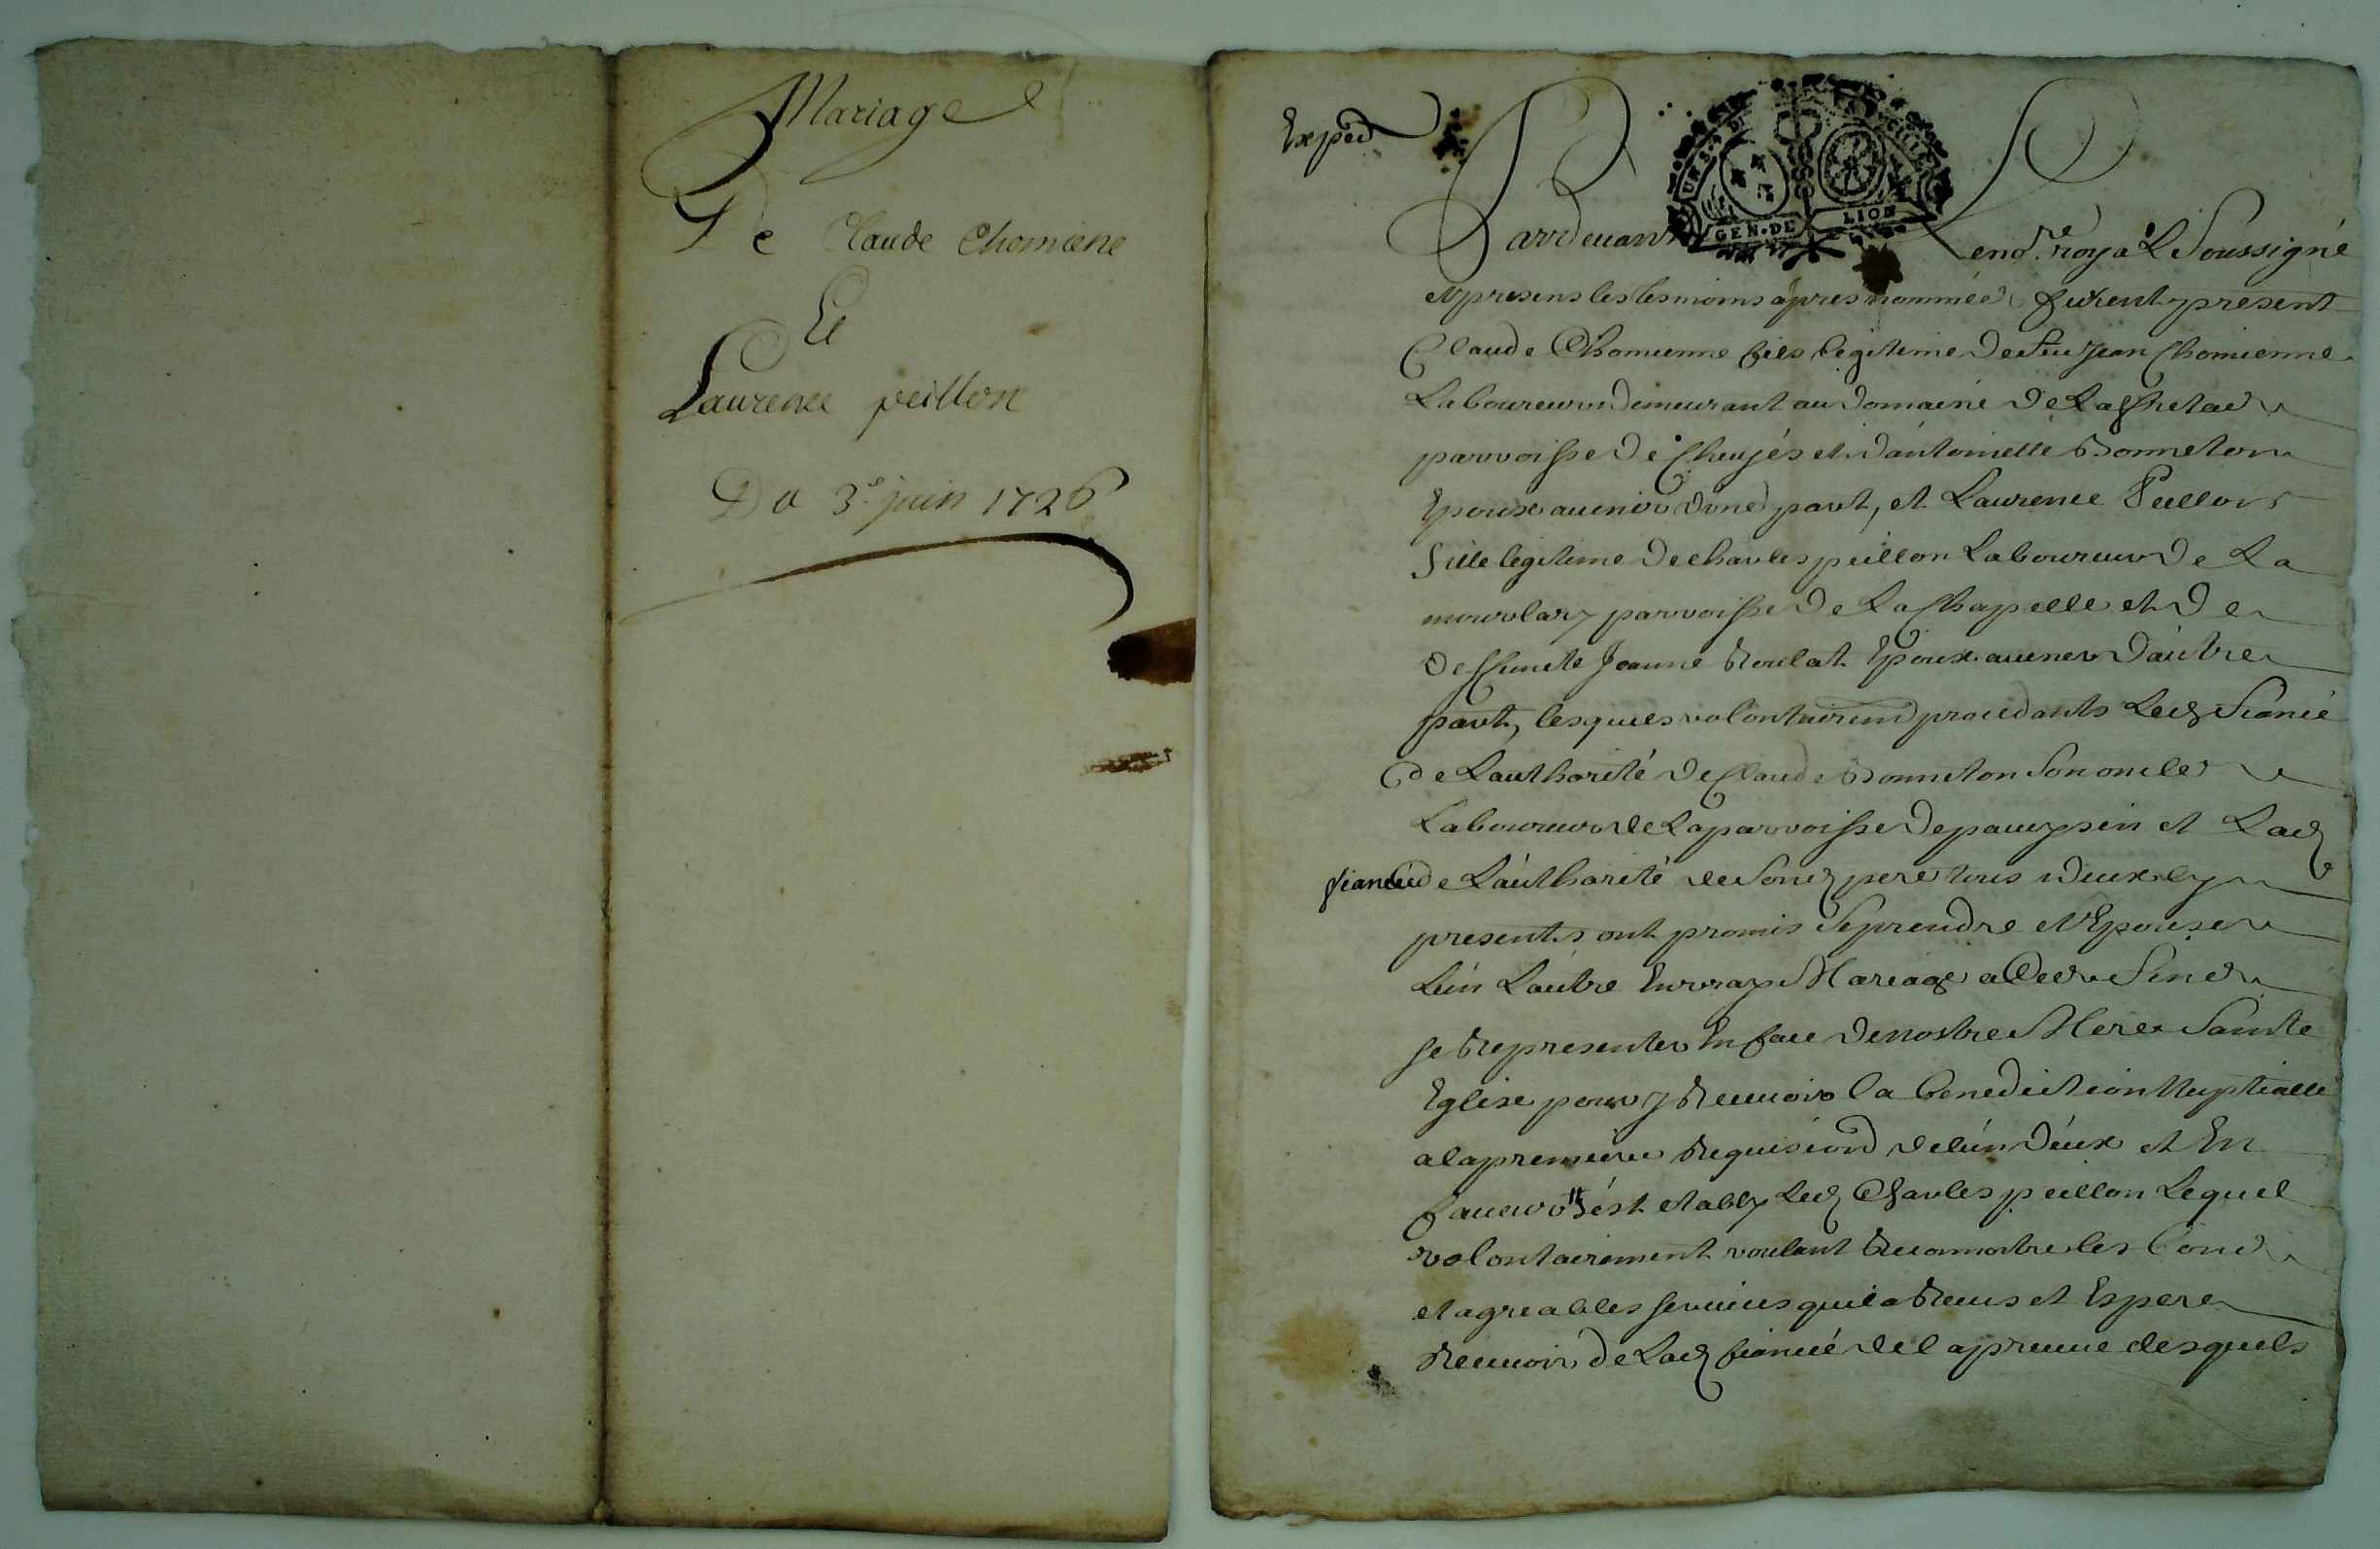 Mariage
De Claude Chomiene
Et
Laurence peillon
Du 3e juin 1726
Exped
GEN. DE LION
Pardeuant Le no.re royal Soussigné
et presens les tesmoins apres nommées furent present
Claude Chomienne fils legitime de feu Jean Chomienne
Laboureur demeurant au domaine de
parroisse de et d'antoinette Bonneton
Epoux auenir dune part, et Laurence Peillon
fille legitime de charles peillon Laboureur de La
parroisse de La Chapelle et de
deffuncte Jeanne Roulat Epouse auenir d'autre
part, lesquels volontairemt procedants Led fiancé
de Lauthorité de Claude Bonneton son oncle
Laboureur de La parroisse de et Lad
fiancée de L'authorité de Sond pere tous deux cy
presents ont promis Se prendre et Epouser
L'un L'autre En vray Mariage a Cet Fin de
se Representer En face de nostre Mere Sainte
Eglise pour y Receuoir la benediction Nuptialle
a la premiere Requision de lun deux et En
faueur s'est etably Led Charles peillon Lequel
volontairement voulant Reconnoitre les bons
et agreables seruices quil a Receus et Espere
Receuoir de Lad fiancée de la preuue desquels